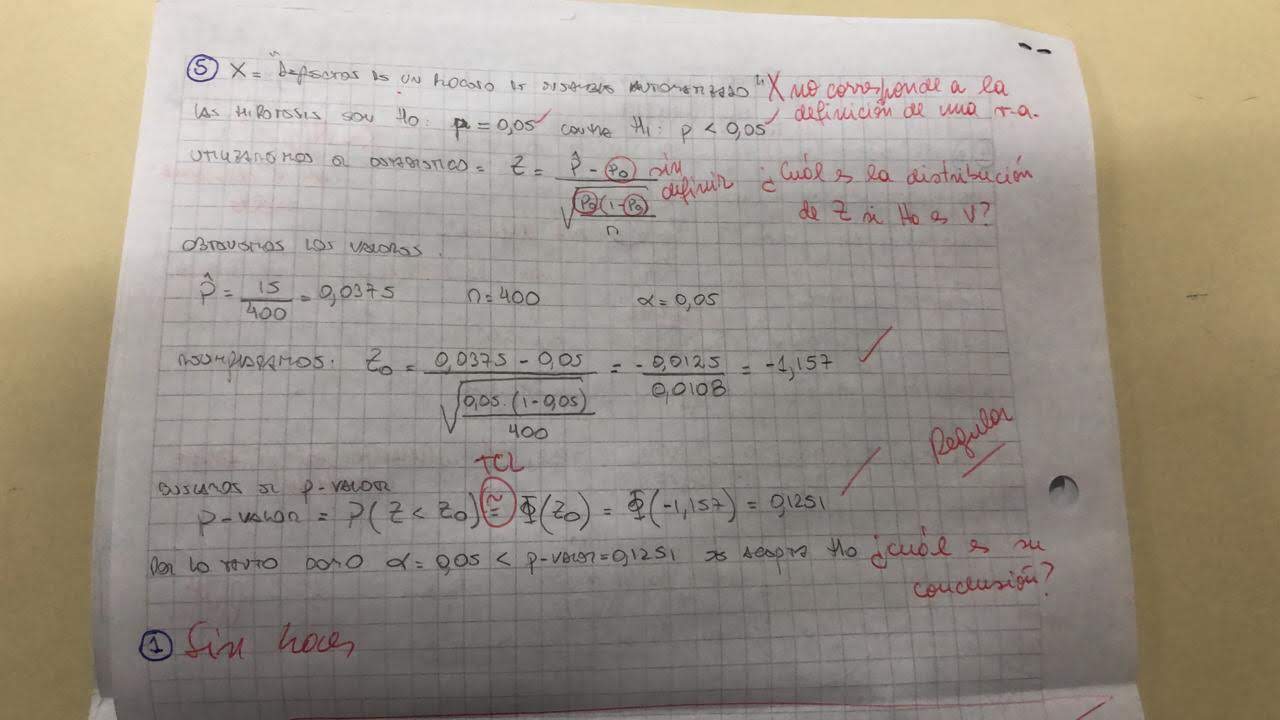 ⑤ X = "Defectos de un proceso de ensamble automatizado" X no corresponde a la
definición de una v.a.
Las hipotesis son H₀: p = 0,05 ✓ contra H₁: p < 0,05 ✓
utilizaremos el estadistico = Z = (p̂ - p₀) / √(p₀(1-p₀)/n) sin definir ¿Cuál es la distribución
de Z si H₀ es V?
obtuvimos los valores.
p̂ = 15/400 = 0,0375 n=400 α=0,05
reemplazamos. Z₀ = (0,0375 - 0,05) / √(0,05.(1-0,05)/400) = -0,0125/0,0108 = -1,157 ✓
Regular
TCL
buscamos el p-valor
p-valor = P(Z < Z₀) ≅ Φ(Z₀) = Φ(-1,157) = 0,1251 ✓
Por lo tanto como α = 0,05 < p-valor = 0,1251 se acepta H₀ ¿cuál es su
conclusión?
① Sin hacer